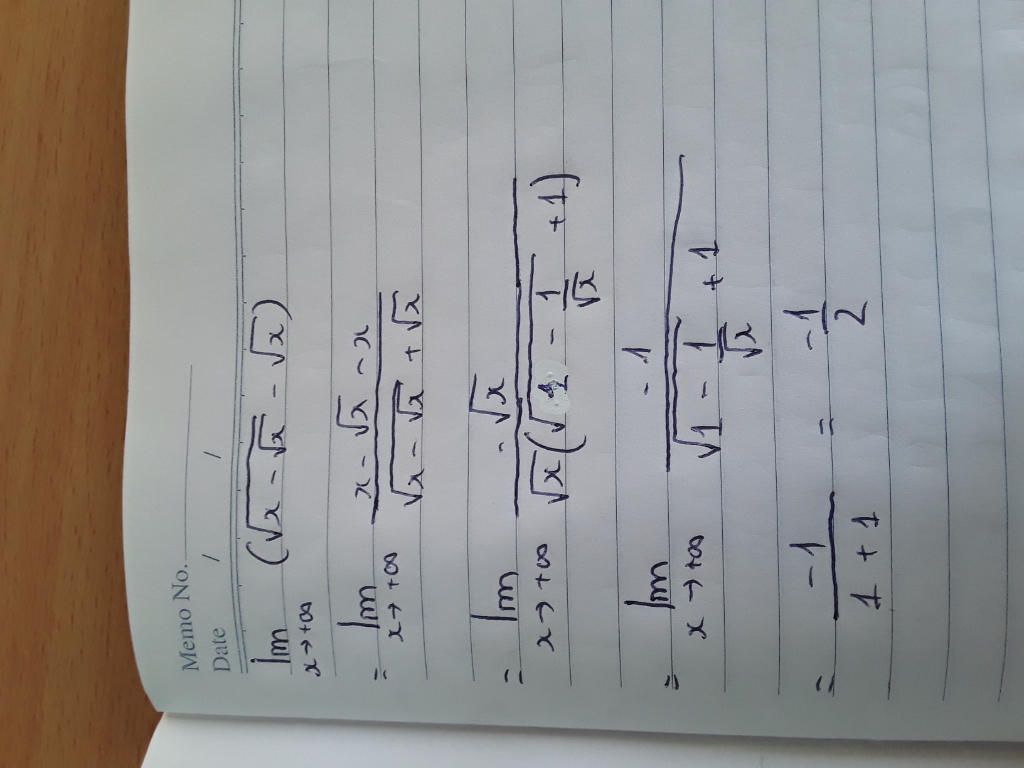 Memo No.
Date / /
lim x→+∞ (√(x - √x) - √x)
= lim x→+∞ (x - √x - x)/(√(x - √x) + √x)
= lim x→+∞ (-√x)/(√x(√(1 - 1/√x) + 1))
= lim x→+∞ (-1)/(√(1 - 1/√x) + 1)
= (-1)/(1 + 1) = -1/2